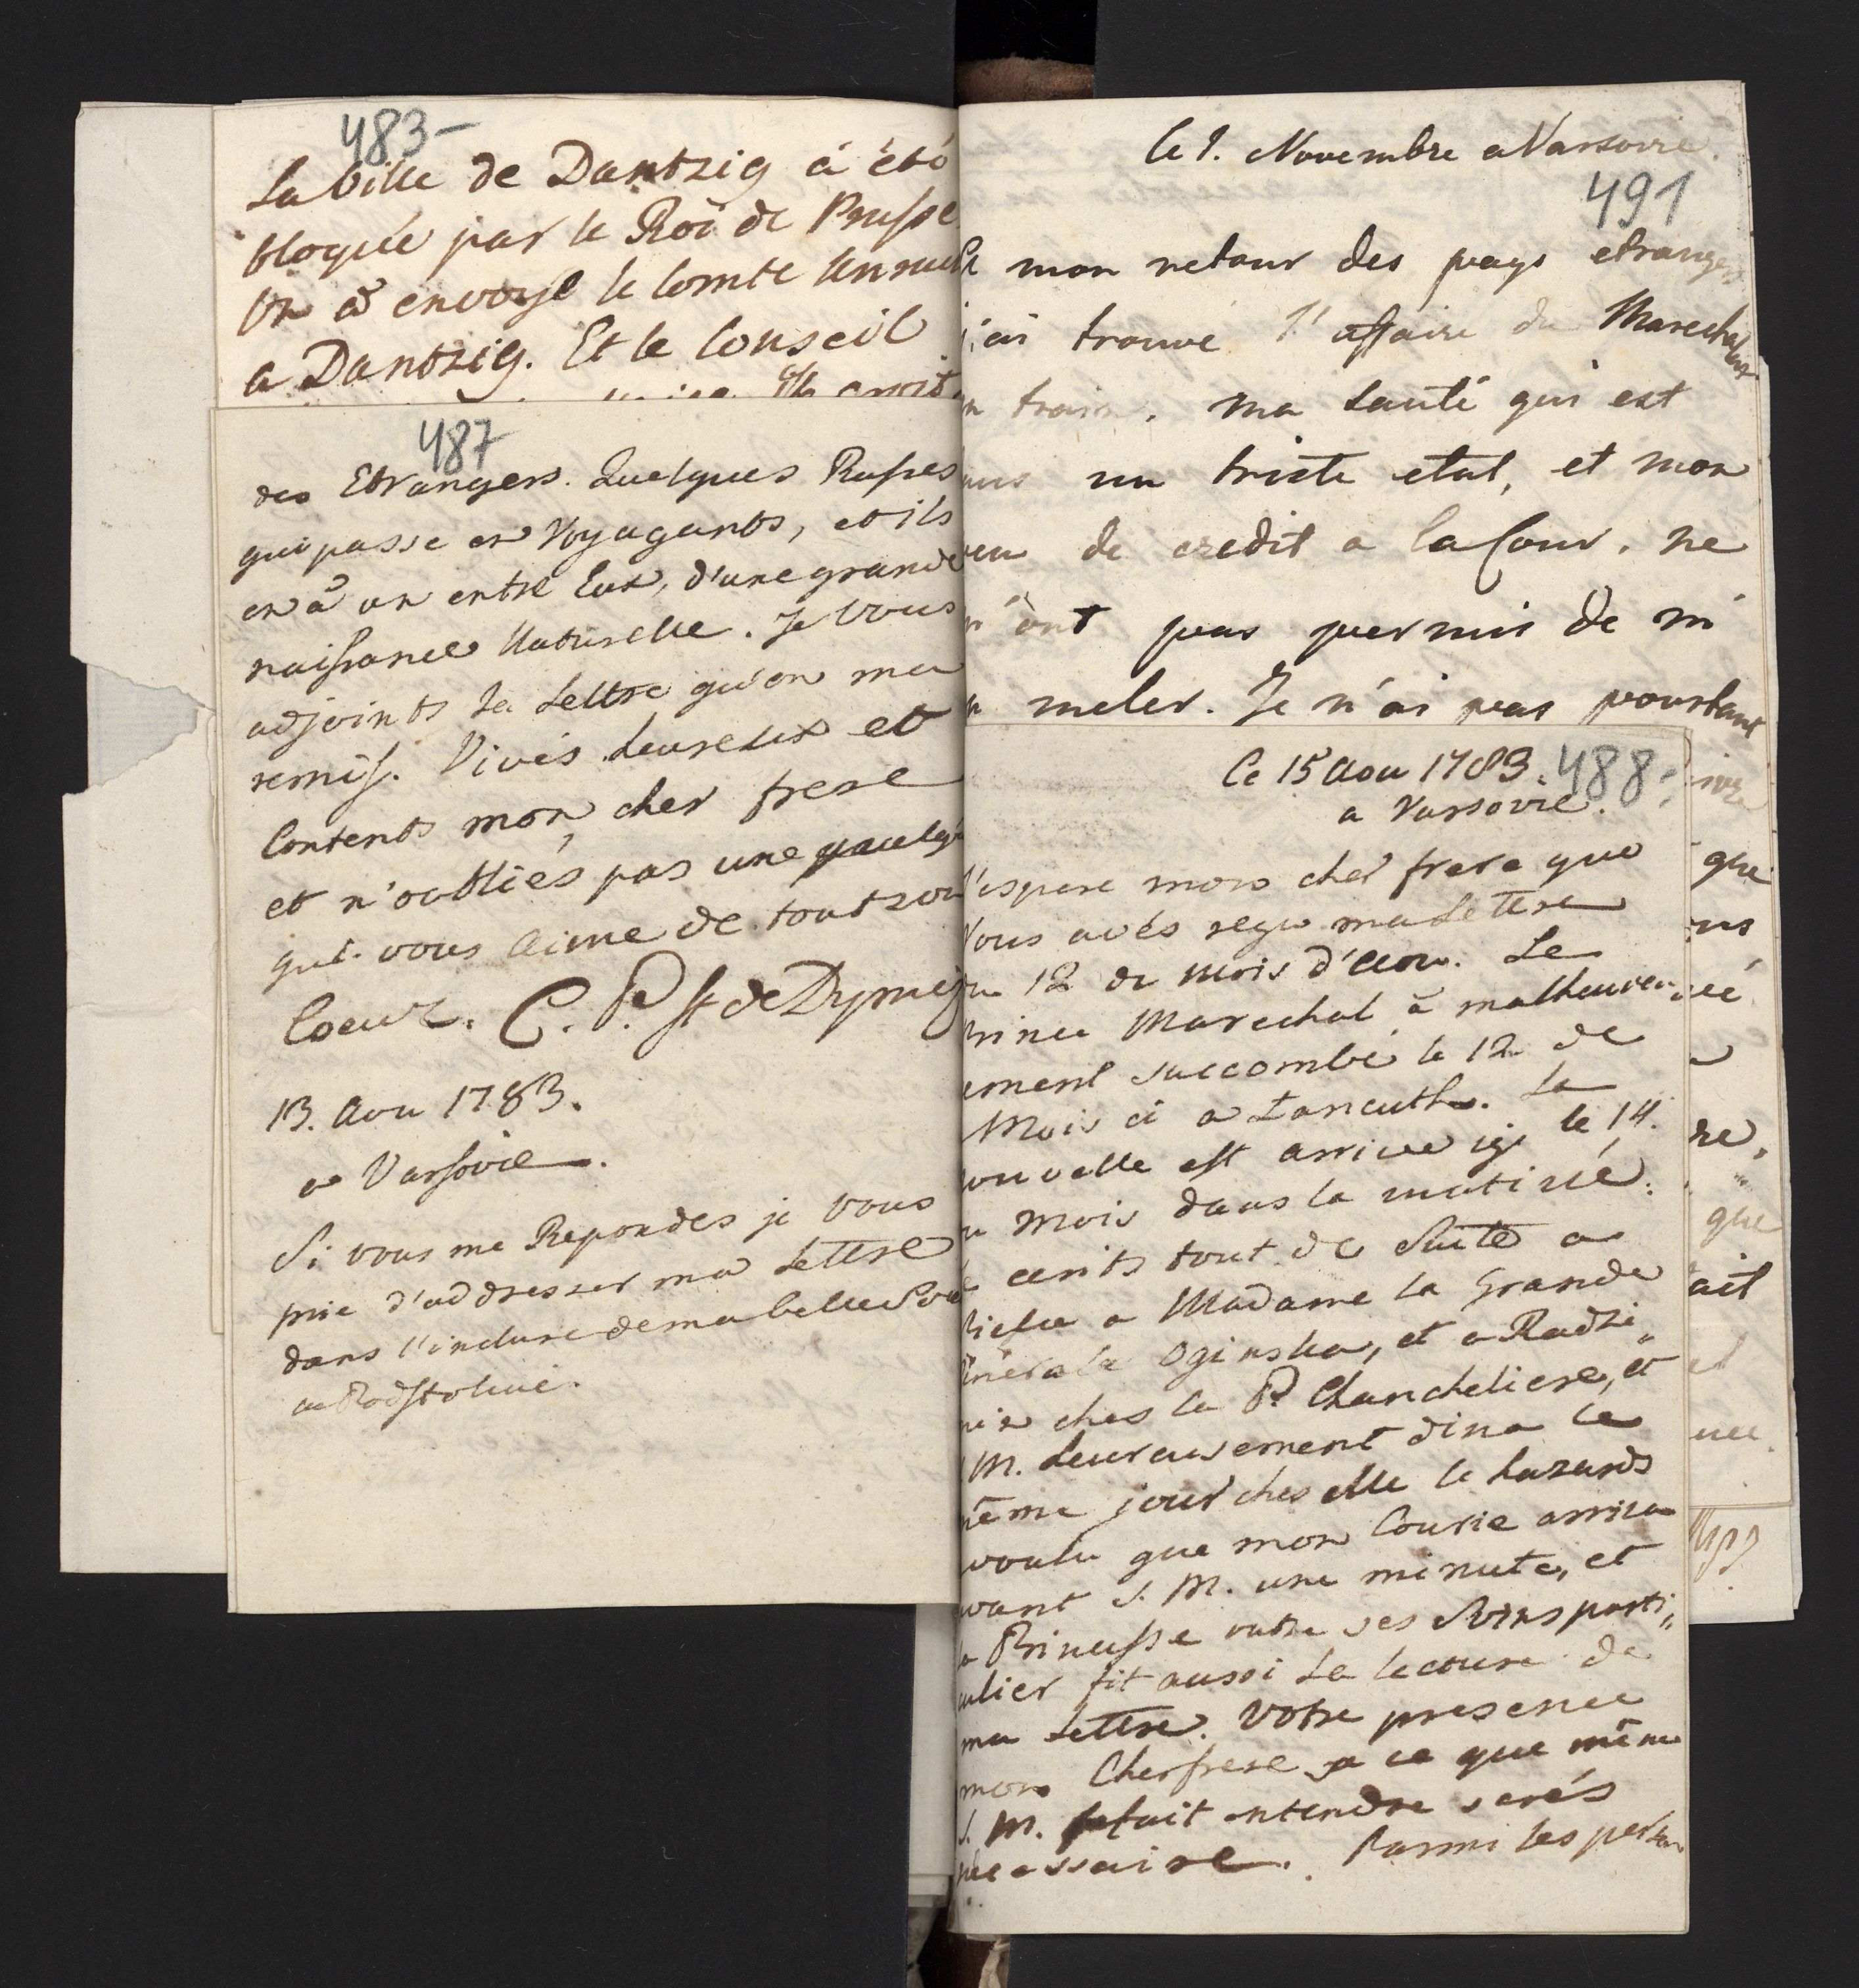 483-
La Ville de Dantzig á été
bloquée par le Roi de Prusse
On à envoyé le Comte
a Dantzig. Et le Conseil
487
des Etrangers. Quelques Russes
qui passe en Voyagants, et ils
en à un entre Eux, d'une grande
naissance Naturelle. Je vous
adjoints la Lettre qu'on ma
remis. Vivés heureux et
Contents mon cher frere
et n'oubliés pas une
qui vous aime de tout son
Coeur. C. P. St de
13. Aou 1783.
a Varsovie.
Si vous me Repondes je vous
prie d'addresser ma Lettre
dans l'incluse de ma belle
a
le 1. Novembre a Varsovie.
491
mon retour des pays etrangers
j'ai trouvé l'affaire du
train. ma santé qui est
un triste etat, et mon
peu de credit a la Cour. ne
n'ont pas permis de m'
meler. Je n'ai pas pourtant
Ce 15 Aou 1783. 488
a Varsovie.
J'espere mon cher frere que
Vous avés reçu ma Lettre
du 12 du Mois d'Aou. Le
Prince Marechal à malheureu-
sement succombé le 12 de
Mois ci a Lancuth. La
nouvelle est arrivee içi le 14.
du Mois dans la matiné.
ecrits tout de Suite a
a Madame la Grande
Generale Oginska, et a Radzi„
ches la P. Chancheliere, et
S. M. heureusement dina le
même jour ches elle le hazards
voulu que mon Courie arriva
avant S. M. une minute, et
la Princesse outre ses Soins parti„
culier fit aussi la lecture de
ma Lettre. Votre presence
mon Cher frere a ce que même
S. M. fait entendre serés
necessaire. Parmi les
que
ait